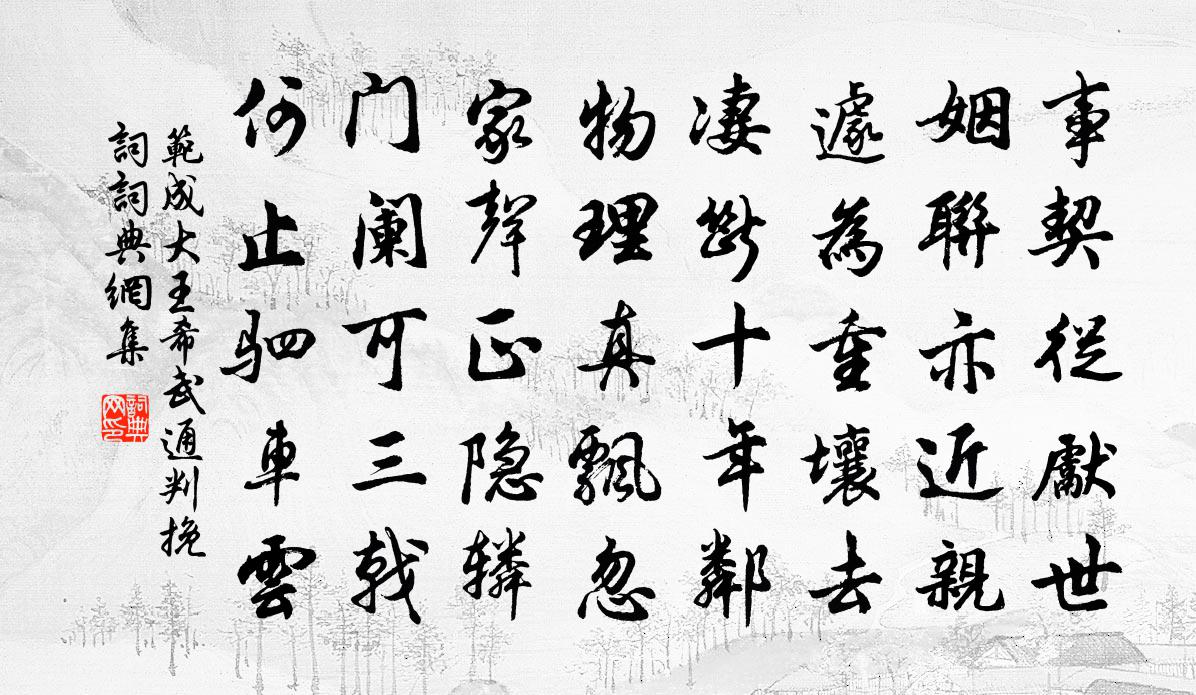 事契從獻世
姻聯亦近親
遽為重壤去
凄斷十年鄰
物理真飄忽
家聲正隐轔
门阑可三戟
何止驷車雲
範成大王希武通判挽
詞詞典網集
詞典网印